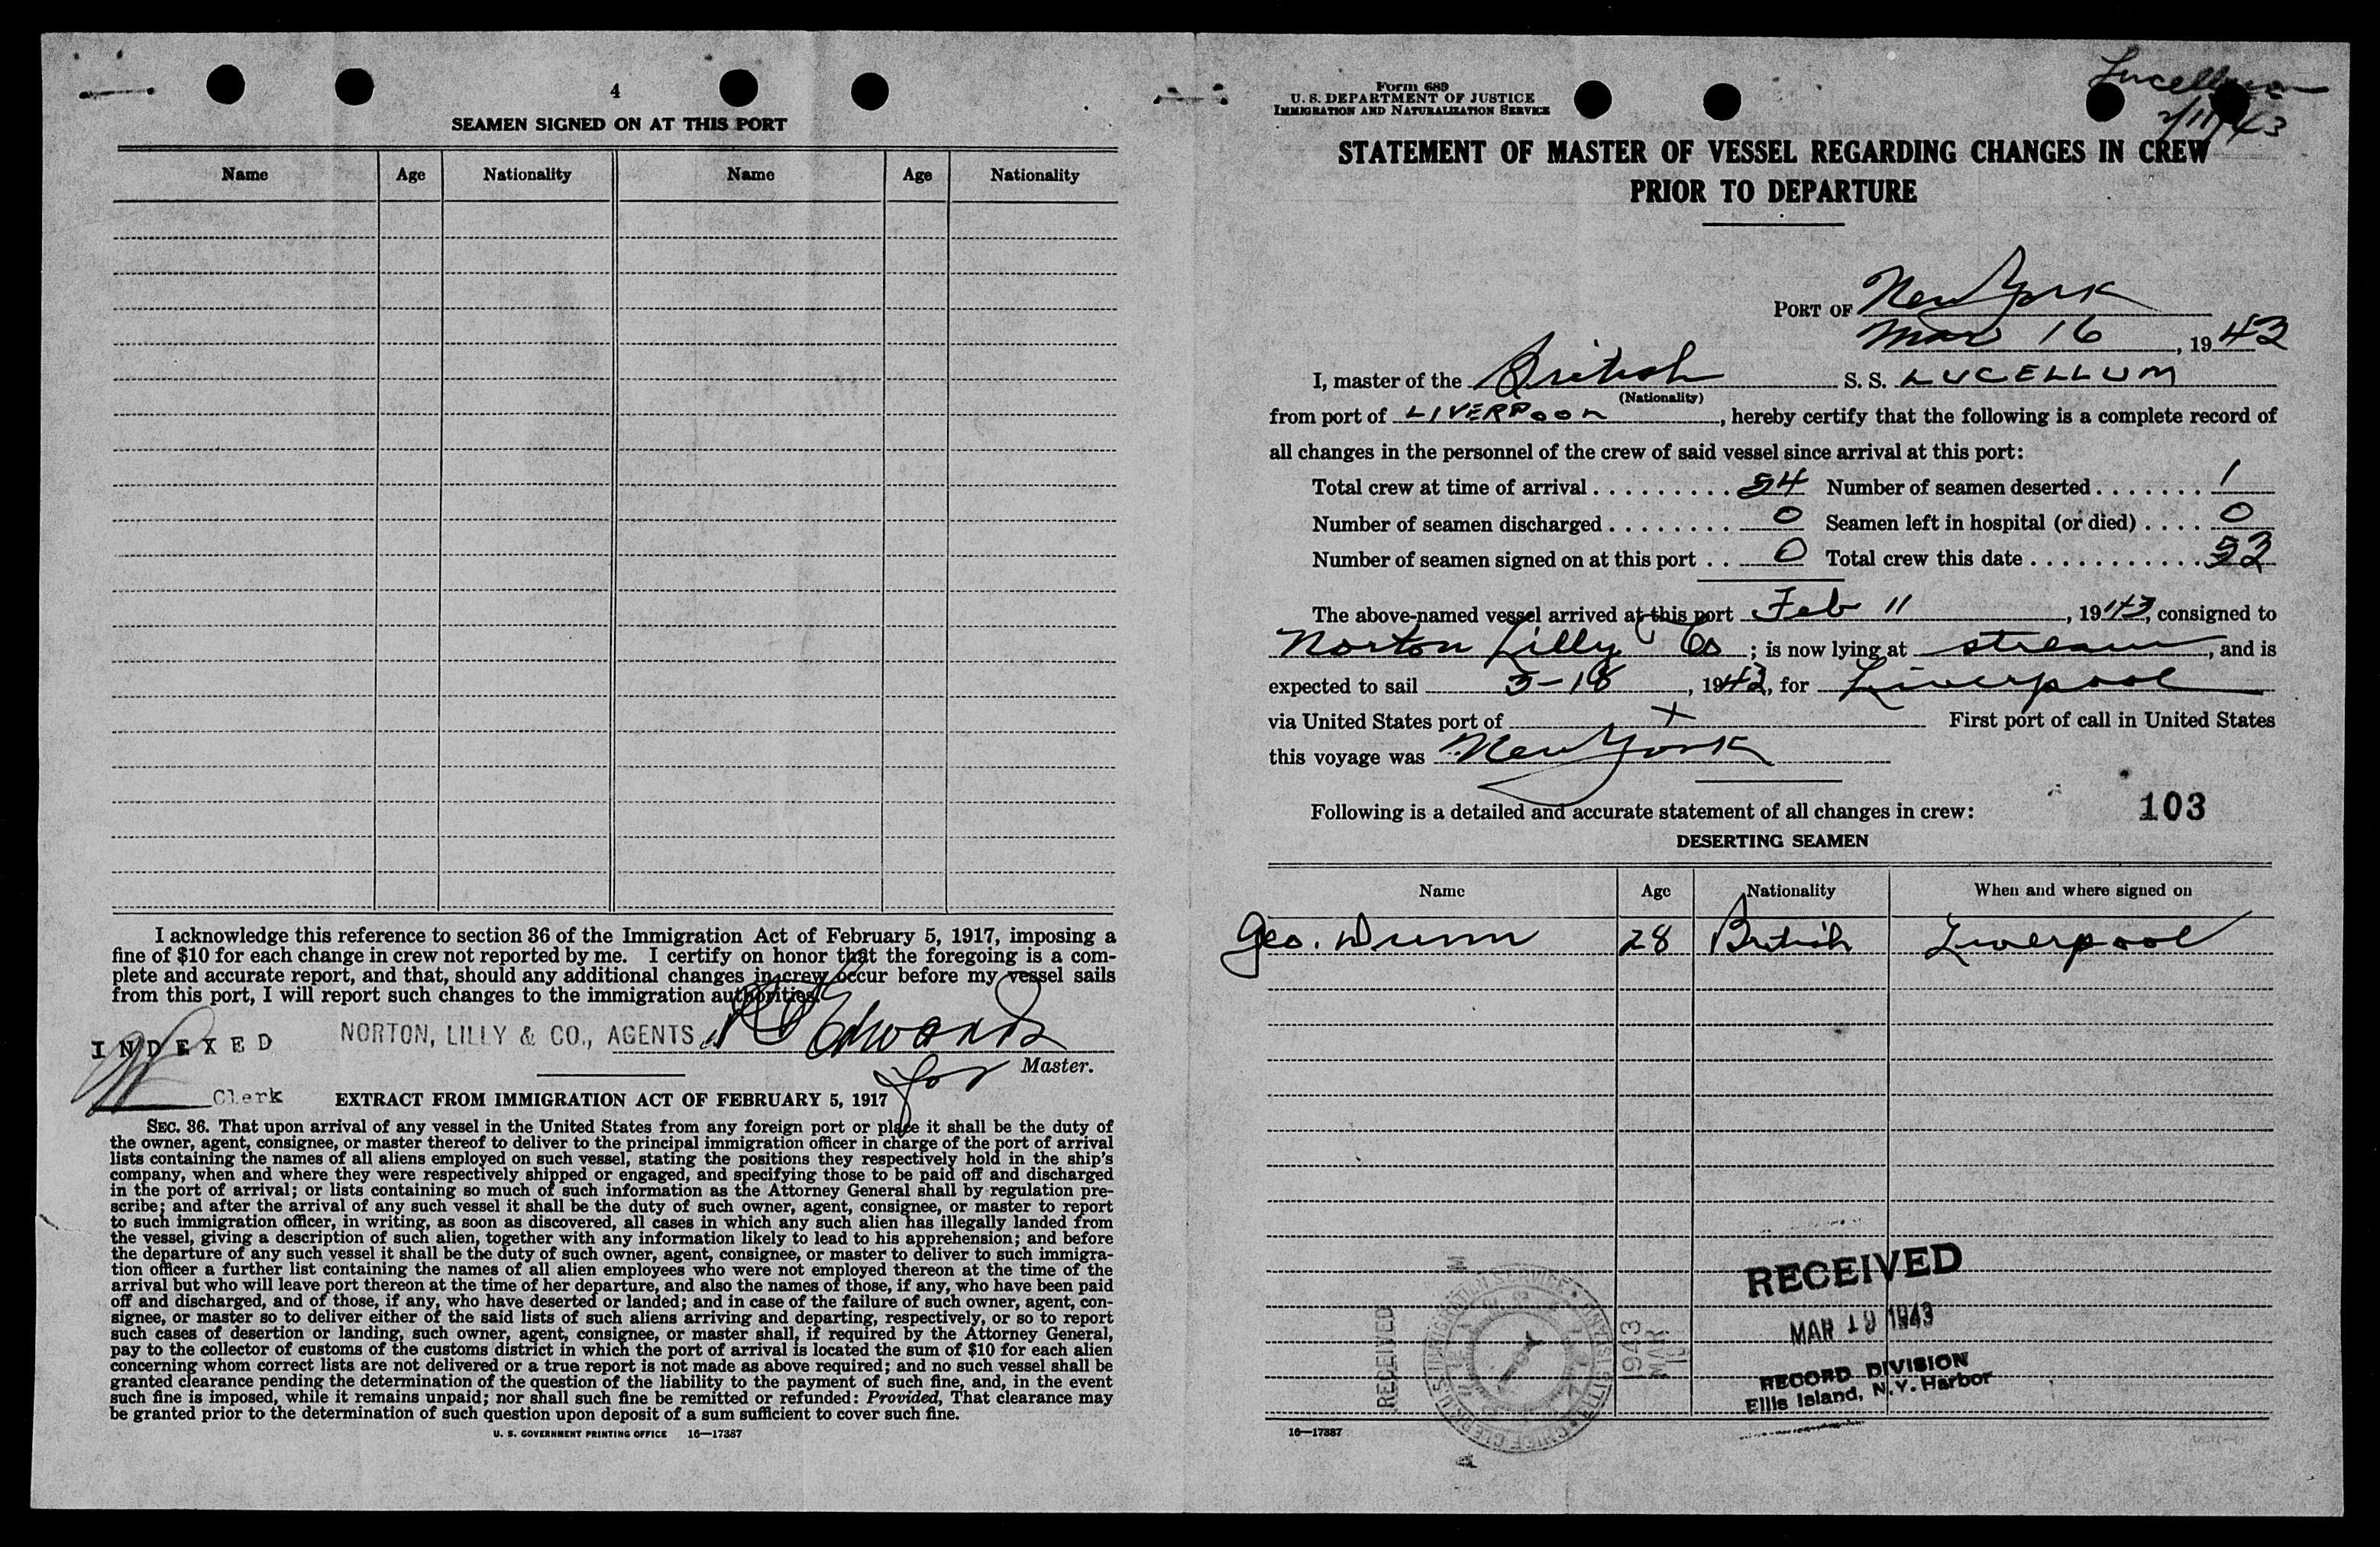 4
SEAMEN SIGNED ON AT THIS PORT
Name Age Nationality Name Age Nationality
I acknowledge this reference to section 36 of the Immigration Act of February 5, 1917, imposing a
fine of $10 for each change in crew not reported by me. I certify on honor that the foregoing is a com-
plete and accurate report, and that, should any additional changes in crew occur before my vessel sails
from this port, I will report such changes to the immigration authorities.
NORTON, LILLY & CO., AGENTS Edwards
INDEXED
for Master.
Clerk
EXTRACT FROM IMMIGRATION ACT OF FEBRUARY 5, 1917
SEC. 36. That upon arrival of any vessel in the United States from any foreign port or place it shall be the duty of
the owner, agent, consignee, or master thereof to deliver to the principal immigration officer in charge of the port of arrival
lists containing the names of all aliens employed on such vessel, stating the positions they respectively hold in the ship's
company, when and where they were respectively shipped or engaged, and specifying those to be paid off and discharged
in the port of arrival; or lists containing so much of such information as the Attorney General shall by regulation pre-
scribe; and after the arrival of any such vessel it shall be the duty of such owner, agent, consignee, or master to report
to such immigration officer, in writing, as soon as discovered, all cases in which any such alien has illegally landed from
the vessel, giving a description of such alien, together with any information likely to lead to his apprehension; and before
the departure of any such vessel it shall be the duty of such owner, agent, consignee, or master to deliver to such immigra-
tion officer a further list containing the names of all alien employees who were not employed thereon at the time of the
arrival but who will leave port thereon at the time of her departure, and also the names of those, if any, who have been paid
off and discharged, and of those, if any, who have deserted or landed; and in case of the failure of such owner, agent, con-
signee, or master so to deliver either of the said lists of such aliens arriving and departing, respectively, or so to report
such cases of desertion or landing, such owner, agent, consignee, or master shall, if required by the Attorney General,
pay to the collector of customs of the customs district in which the port of arrival is located the sum of $10 for each alien
concerning whom correct lists are not delivered or a true report is not made as above required; and no such vessel shall be
granted clearance pending the determination of the question of the liability to the payment of such fine, and, in the event
such fine is imposed, while it remains unpaid; nor shall such fine be remitted or refunded: Provided, That clearance may
be granted prior to the determination of such question upon deposit of a sum sufficient to cover such fine.
U. S. GOVERNMENT PRINTING OFFICE 16—17387
Form 689
U. S. DEPARTMENT OF JUSTICE
IMMIGRATION AND NATURALIZATION SERVICE
2/11/43
STATEMENT OF MASTER OF VESSEL REGARDING CHANGES IN CREW
PRIOR TO DEPARTURE
PORT OF New York
Mar 16, 1943
I, master of the British S. S. LUCELLUM
(Nationality)
from port of LIVERPOOL, hereby certify that the following is a complete record of
all changes in the personnel of the crew of said vessel since arrival at this port:
Total crew at time of arrival . . . . . . . . . 54 Number of seamen deserted . . . . . . . 1
Number of seamen discharged . . . . . . . . 0 Seamen left in hospital (or died) . . . . 0
Number of seamen signed on at this port . . 0 Total crew this date . . . . . . . . . . . 53
The above-named vessel arrived at this port Feb 11, 1943, consigned to
Norton Lilly Co; is now lying at stream, and is
expected to sail 3-18, 1943, for Liverpool
via United States port of x First port of call in United States
this voyage was New York
Following is a detailed and accurate statement of all changes in crew: 103
DESERTING SEAMEN
Name Age Nationality When and where signed on
Geo. Dunn 28 British Liverpool
RECEIVED
MAR 19 1943
RECORD DIVISION
Ellis Island, N.Y. Harbor
RECEIVED
1943
MAR
16—17387